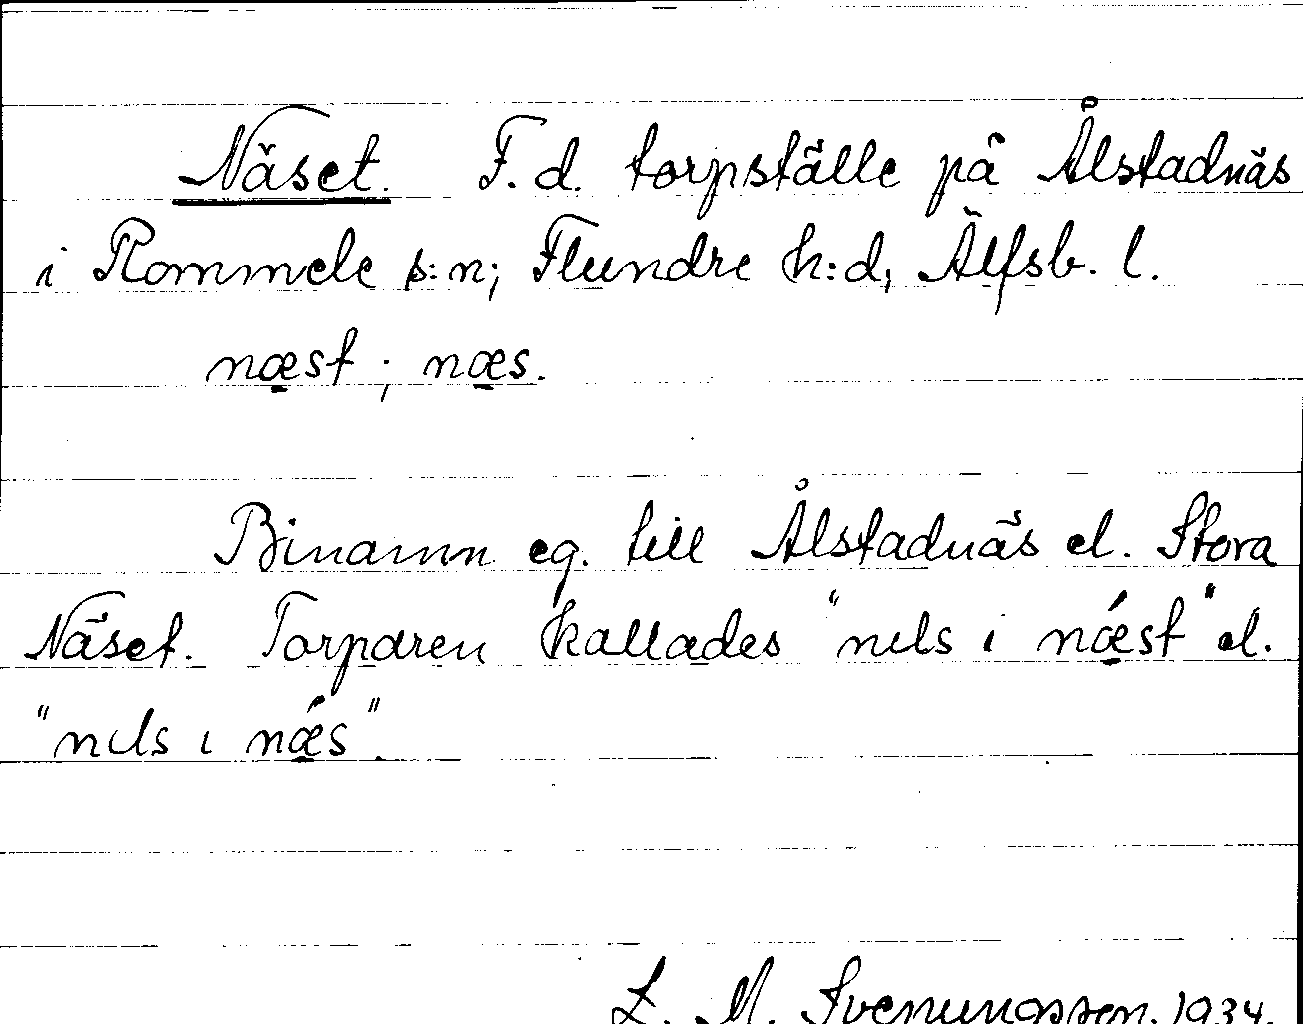 Näset. F. d. torpställe på Ålstadnäs
i Rommele s:n; Flundre h:d, Älfsb. l.
næst; næs.
Binamn eg. till Ålstadnäs el. Stora
Näset. Torparen kallades "nɩls ɩ nǽst" el.
"nɩls ɩ nǽs".
L. M. Svenungsson. 1934.